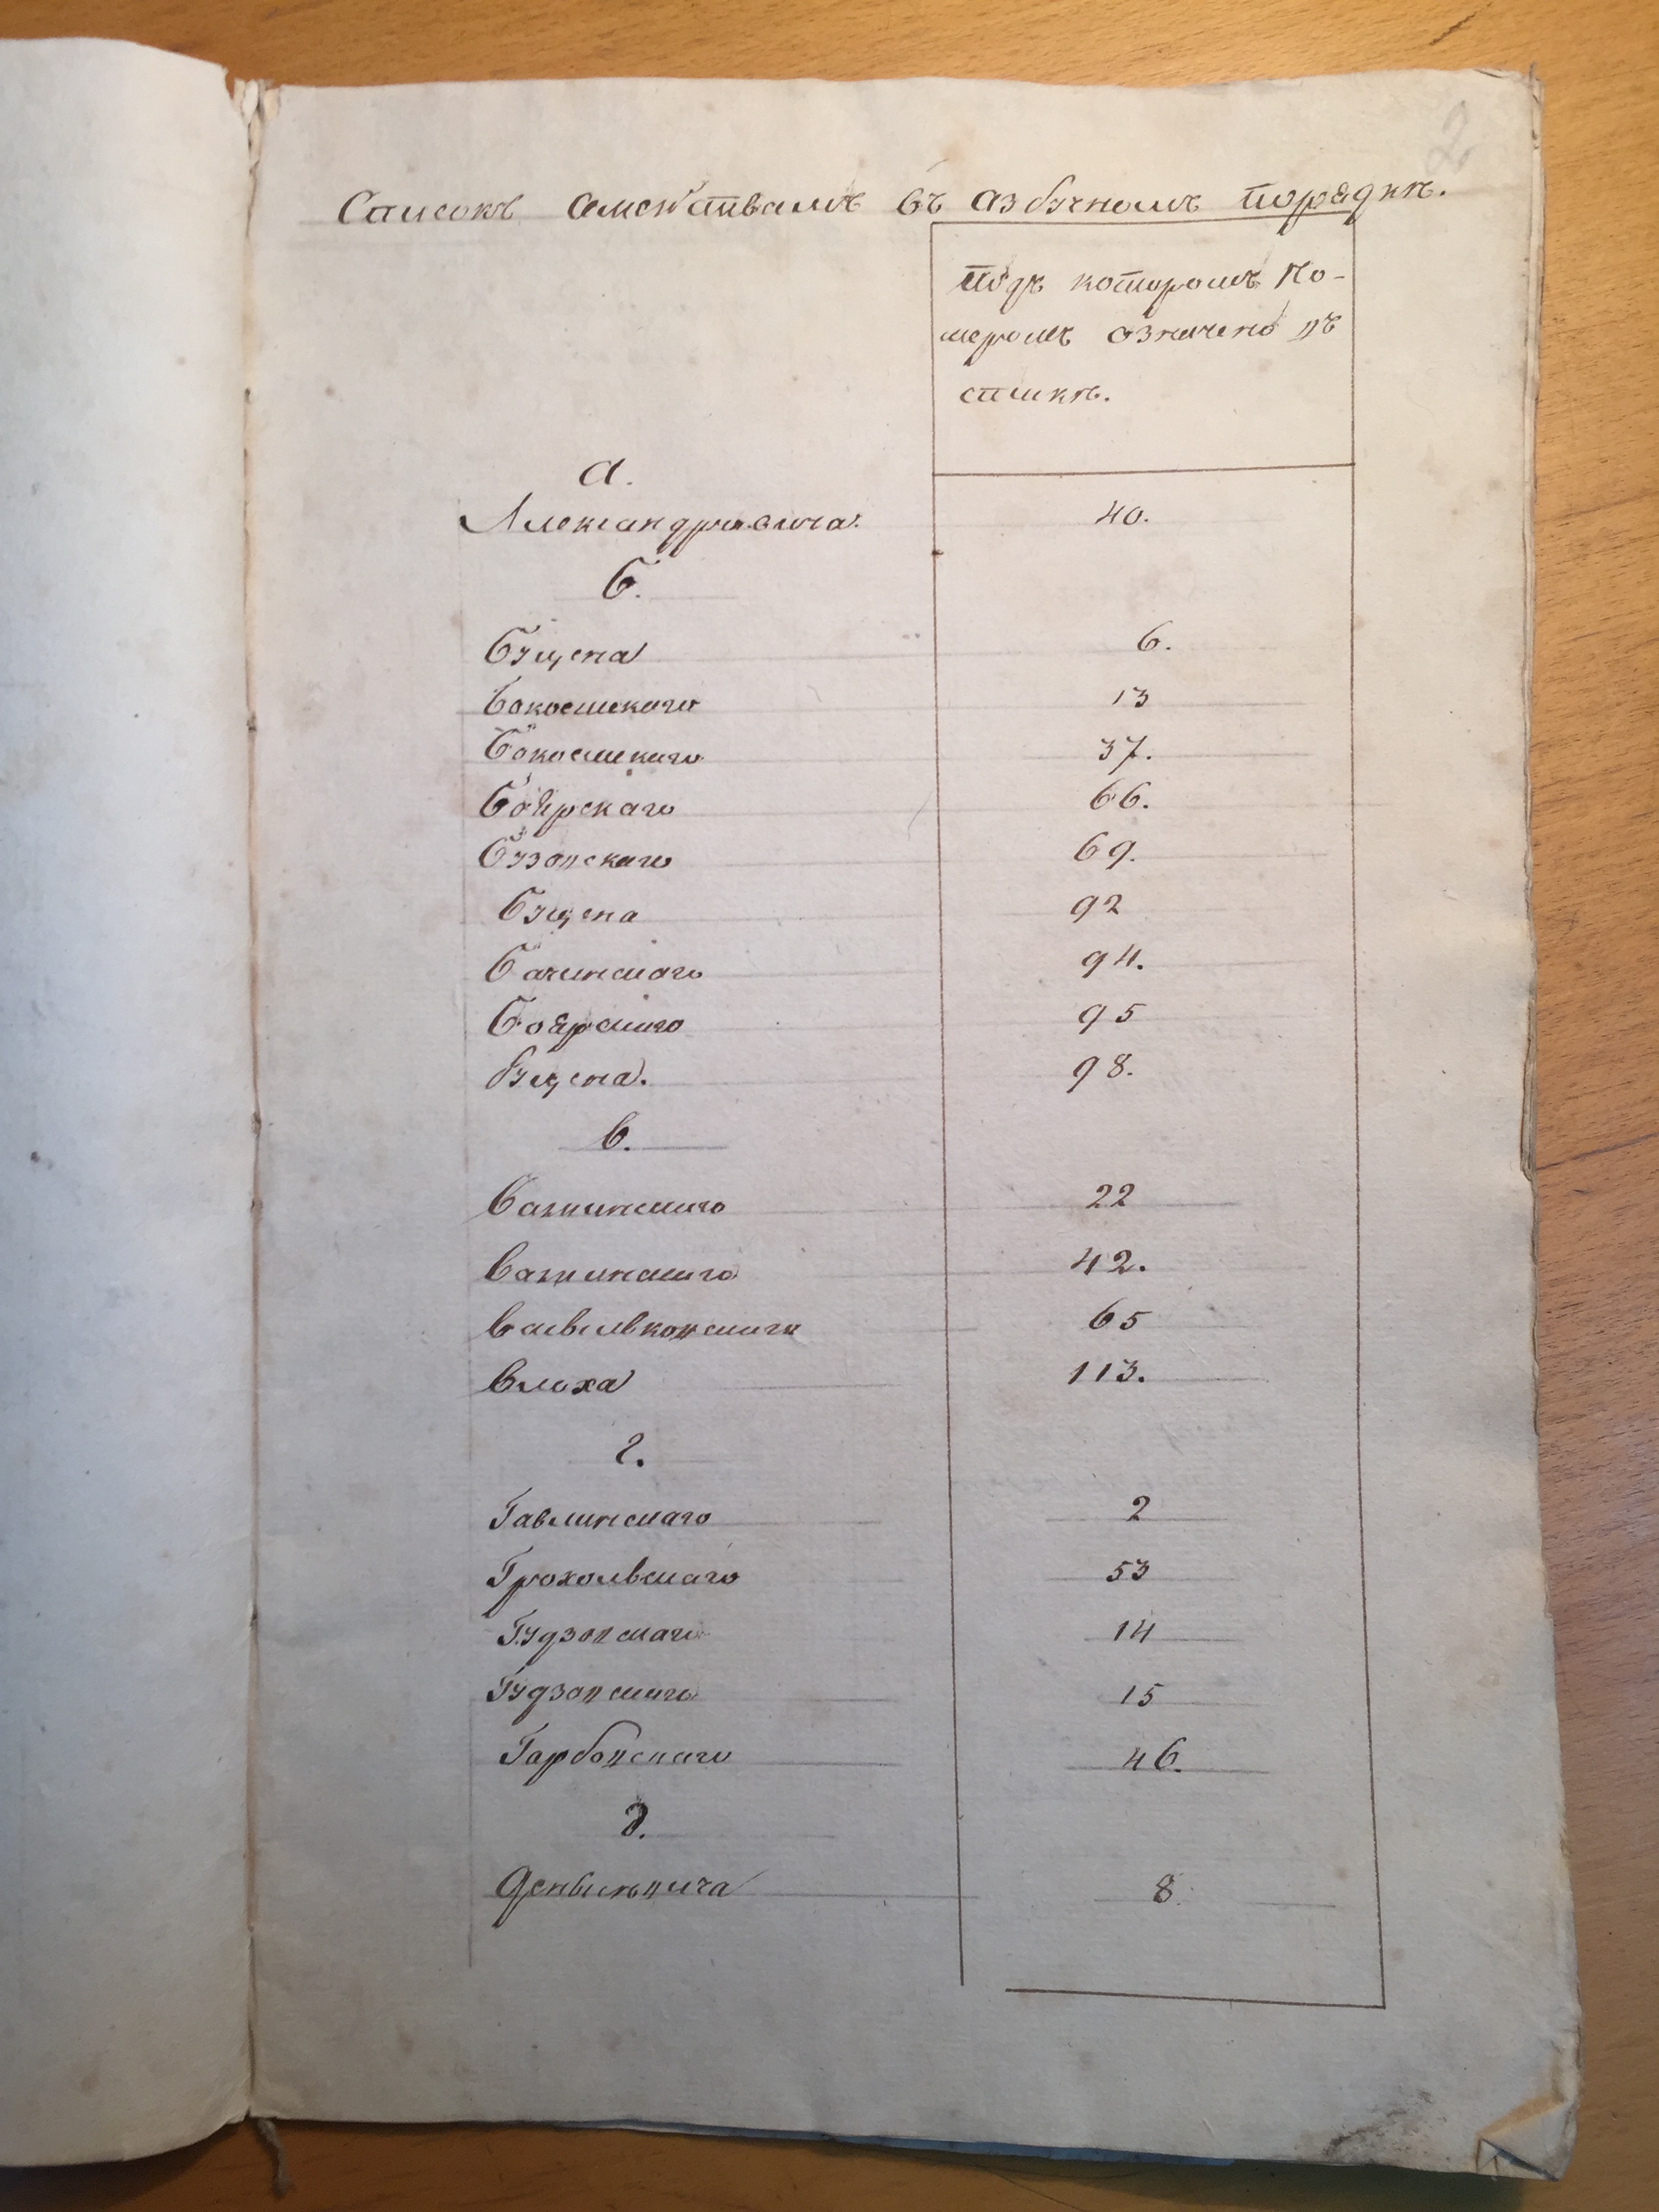 2
Списокъ семействамъ въ азбучномъ порядкѣ.
Подъ которомъ Но-
меромъ означено въ
спискѣ.
А.
Александровича. 40.
Б.
Буцена 6.
Бокоемскаго 13
Бокоемскаго 37.
Боярскаго 66.
Бузовскаго 69.
Буцена 92
Бачинскаго 94.
Боярскаго 95
Буцена. 98.
В.
Важинскаго 22
Важинскаго 42.
Васильковскаго 65
Влоха 113.
Г.
Гавлинскаго 2
Грохольскаго 53
Гудзовскаго 14
Гудзовскаго 15
Гарбовскаго 46.
Д.
8